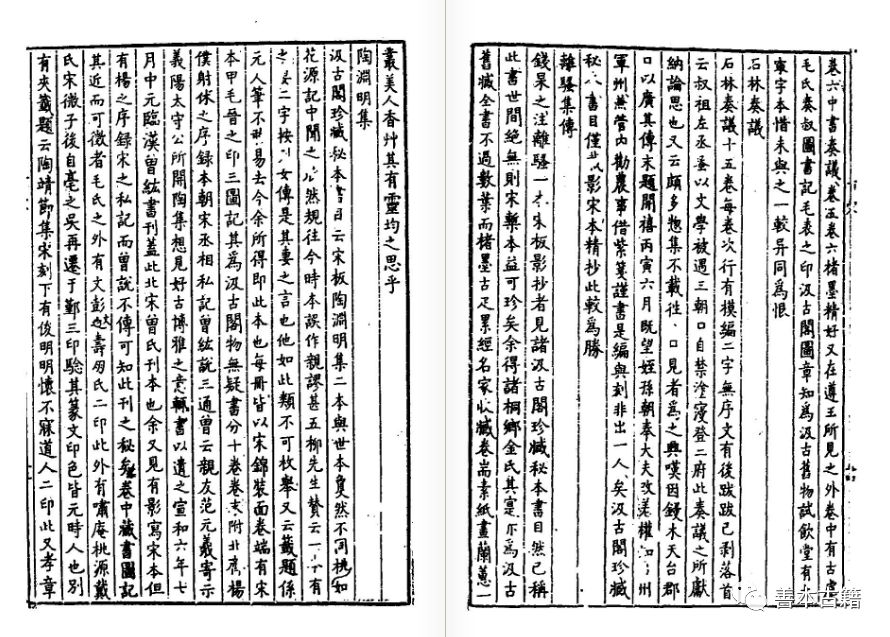 卷六中書奏議卷五卷六楮墨精好又在遵王所見之外卷中有古虞
毛氏奏叔圖書記毛表之印汲古閣圖章知為汲古舊物試飲堂有
宋字本惜未與之一較異同為恨
石林奏議
石林奏議十五卷每卷次行有模編二字無序文有後跋跋已剥落首
云叔祖左丞蚤以文學被遇三朝口自禁塗寖登二府此奏議之所獻
納論思也又云頗多惣集不載徃口見者為之興嘆因鋟木天台郡
口以廣其傳末題開禧丙寅六月既望姪孫朝奉大夫改差權知州
軍州兼管內勸農事借紫箋謹書是編與刻非出一人矣汲古閣珍藏
秘書目僅以影宋本精抄此較為勝
離騷集傳
錢杲之注離騷一本宋板影抄者見諸汲古閣珍藏秘本書目然已稱
此書世間絕無則宋槧本益可珍矣余得諸桐鄉金氏其寔亦為汲古
舊藏全書不過數葉而楮墨古足累經名家收藏卷耑素紙畫蘭蕙一
叢美人香艸其有靈均之思乎
陶淵明集
汲古閣珍藏秘本書目云宋板陶淵明集二本與世本夐然不同桃如
花源記中聞之然規往今時本誤作親謬甚五柳先生贊云一有
之妻二字按女傳是其妻之言也他如此類不可枚舉又云籤題係
元人筆不易去今余所得即此本也每冊皆以宋錦裝面卷端有宋
本甲毛晉之印三圖記其為汲古閣物無疑書分十卷卷末附北齊楊
僕射休之序録本朝宋丞相私記曾紘說三通曾云親友范元羲寄示
義陽太守公所開陶集想見好古博雅之意輒書以遺之宣和六年七
月中元臨漢曾紘書刊蓋此北宋曾氏刊本也余又見有影寫宋本但
有楊之序録宋之私記而曾說不傳可知此刊之秘矣卷中藏書圖記
其近而可徵者毛氏之外有文彭大壽㓜氏二印此外有嘯庵桃源戴
氏宋微子後自亳之吳再遷于鄞三印騐其篆文印色皆元時人也別
有夾籤題云陶靖節集宋刻下有俊明明懷不寐道人二印此又孝章
善本古籍